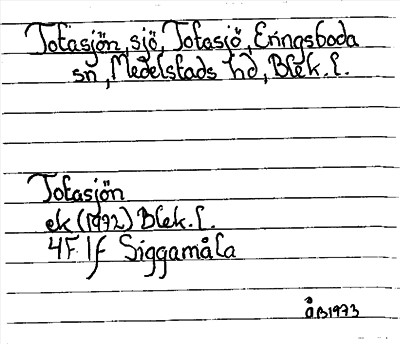 Totasjön, sjö, Totasjö, Eringsboda
sn, Medelstads hd, Blek. l.
Totasjön
ek (1972) Blek. l.
4F 1f Siggamåla
ÅB1973